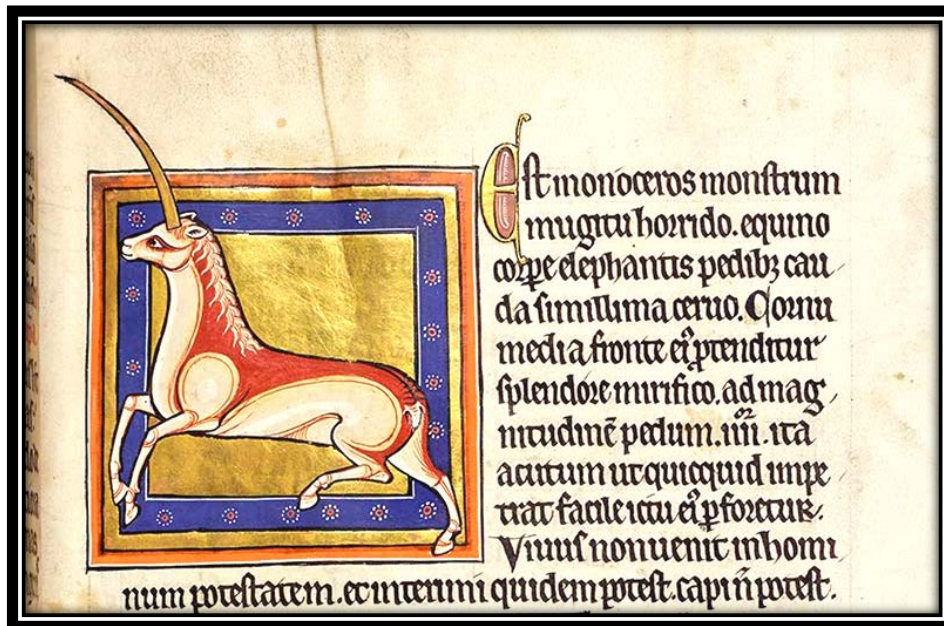 Est monoceros monstrum
mugitu horrido. equino
corpe elephantis pedibꝫ cau
da simillima ceruo. Cornu
media fronte ei᷒ ꝓtenditur
splendore mirifico. ad mag
nitudinē pedum .iiii.or ita
acutum ut quicquid impe
trat facile ictu ei᷒ ꝑforetur.
Viuus non uenit in homi
num potestatem. et interimi quidem potest. capi n̄ potest.